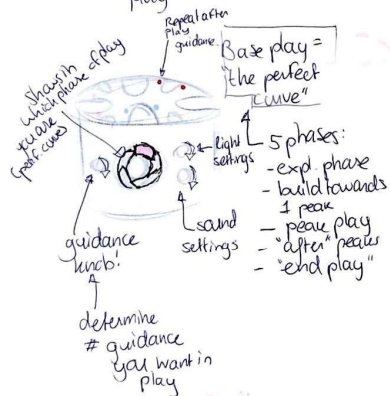 Repeat after
play
guidance.
Base play =
"the perfect
curve"
Shows in
which phase of play
you are
light
settings
5 phases:
- expl. phase
- build towards
1 peak
- peak play
- "after" peaks
- "end play"
sound
settings
guidance
knob!
determine
# guidance
you want in
play